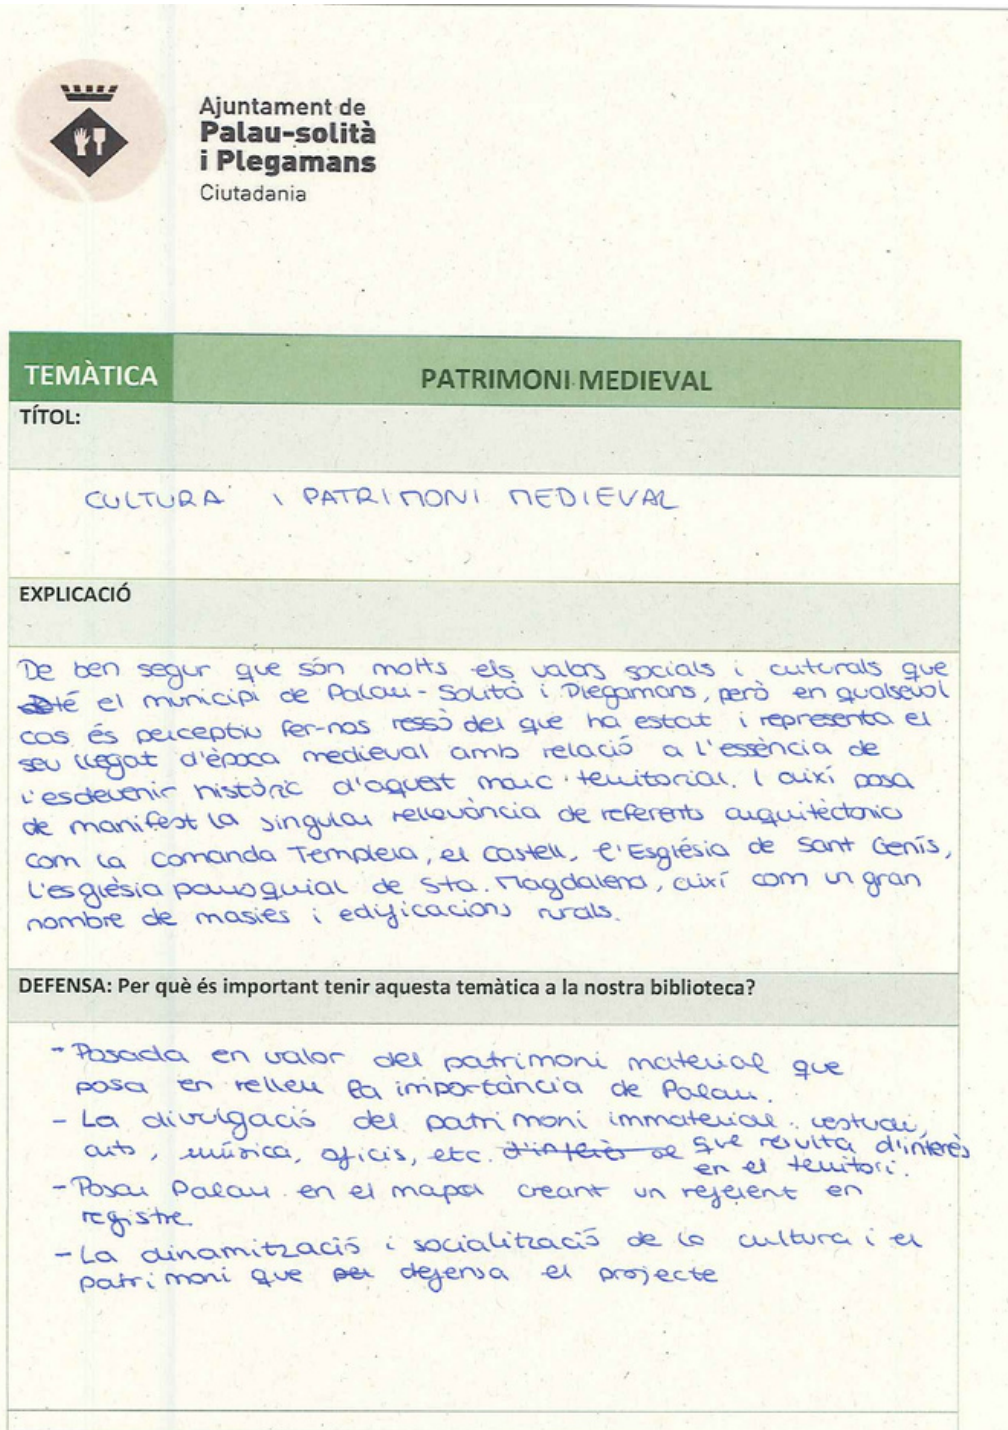 Ajuntament de
Palau-solità
i Plegamans
Ciutadania
TEMÀTICA PATRIMONI MEDIEVAL
TÍTOL:
CULTURA I PATRIMONI MEDIEVAL
EXPLICACIÓ
De ben segur que són molts els valors socials i culturals que
té el municipi de Palau-Solità i Plegamans, però en qualsevol
cas és perceptiu fer-nos ressò del que ha estat i representa el
seu llegat d'època medieval amb relació a l'essència de
l'esdevenir històric d'aquest marc territorial. I així posa
de manifest la singular rellevància de referents arquitectònics
com la Comanda Templera, el Castell, l'Església de Sant Genís,
l'església parroquial de Sta. Magdalena, així com un gran
nombre de masies i edificacions rurals.
DEFENSA: Per què és important tenir aquesta temàtica a la nostra biblioteca?
- Posada en valor del patrimoni material que
posa en relleu la importància de Palau.
- La divulgació del patrimoni immaterial:
arts, música, oficis, etc. que resulta d'interès
en el territori.
- Posar Palau en el mapa creant un referent en
registre.
- La dinamització i socialització de la cultura i el
patrimoni que defensa el projecte